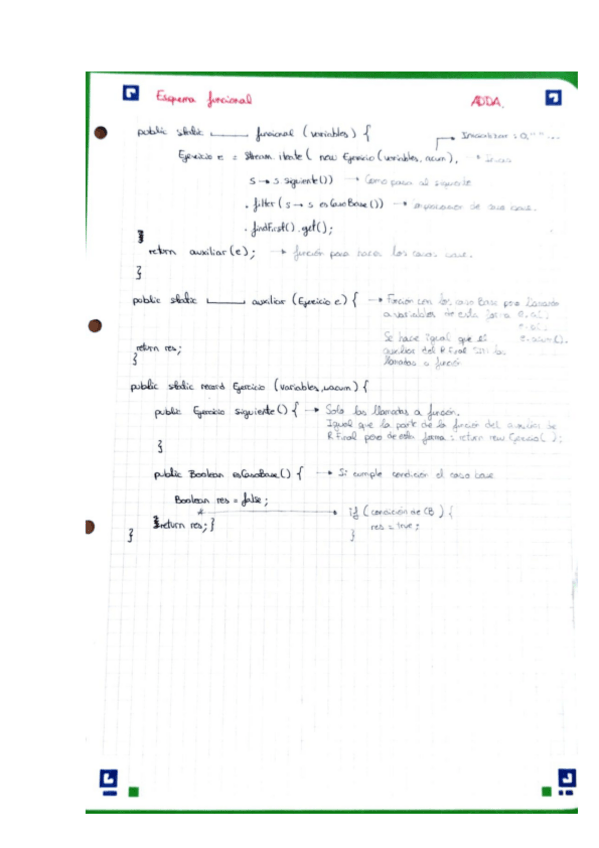 Esquema funcional ADDA.
public static ____ funcional (variables) {
Inicializar : 0, " " ...
Ejercicio e = Stream. iterate ( new Ejercicio (variables, acum),
s → s siguiente()) → Como pasa al siguiente
. filter ( s → s esCasoBase()) → de caso base.
. findFirst(). get();
}
return auxiliar (e); → función para hacer los casos base.
}
public static ____ auxiliar (Ejercicio e) { → Función con los caso Base pero llamando
a variables de esta forma e.a().
Se hace igual que el e.acum().
auxiliar del R Final sin las
llamadas a función
return res;
}
public static record Ejercicio (variables, acum) {
public Ejercicio siguiente() { → Solo las llamadas a función.
Igual que la parte de la función del auxiliar de
R Final pero de esta forma : return new Ejercicio( );
}
public Boolean esCasoBase() { → Si cumple condición el caso base
Boolean res = false;
If (condición de CB ) {
res = true;
}
return res; }
}